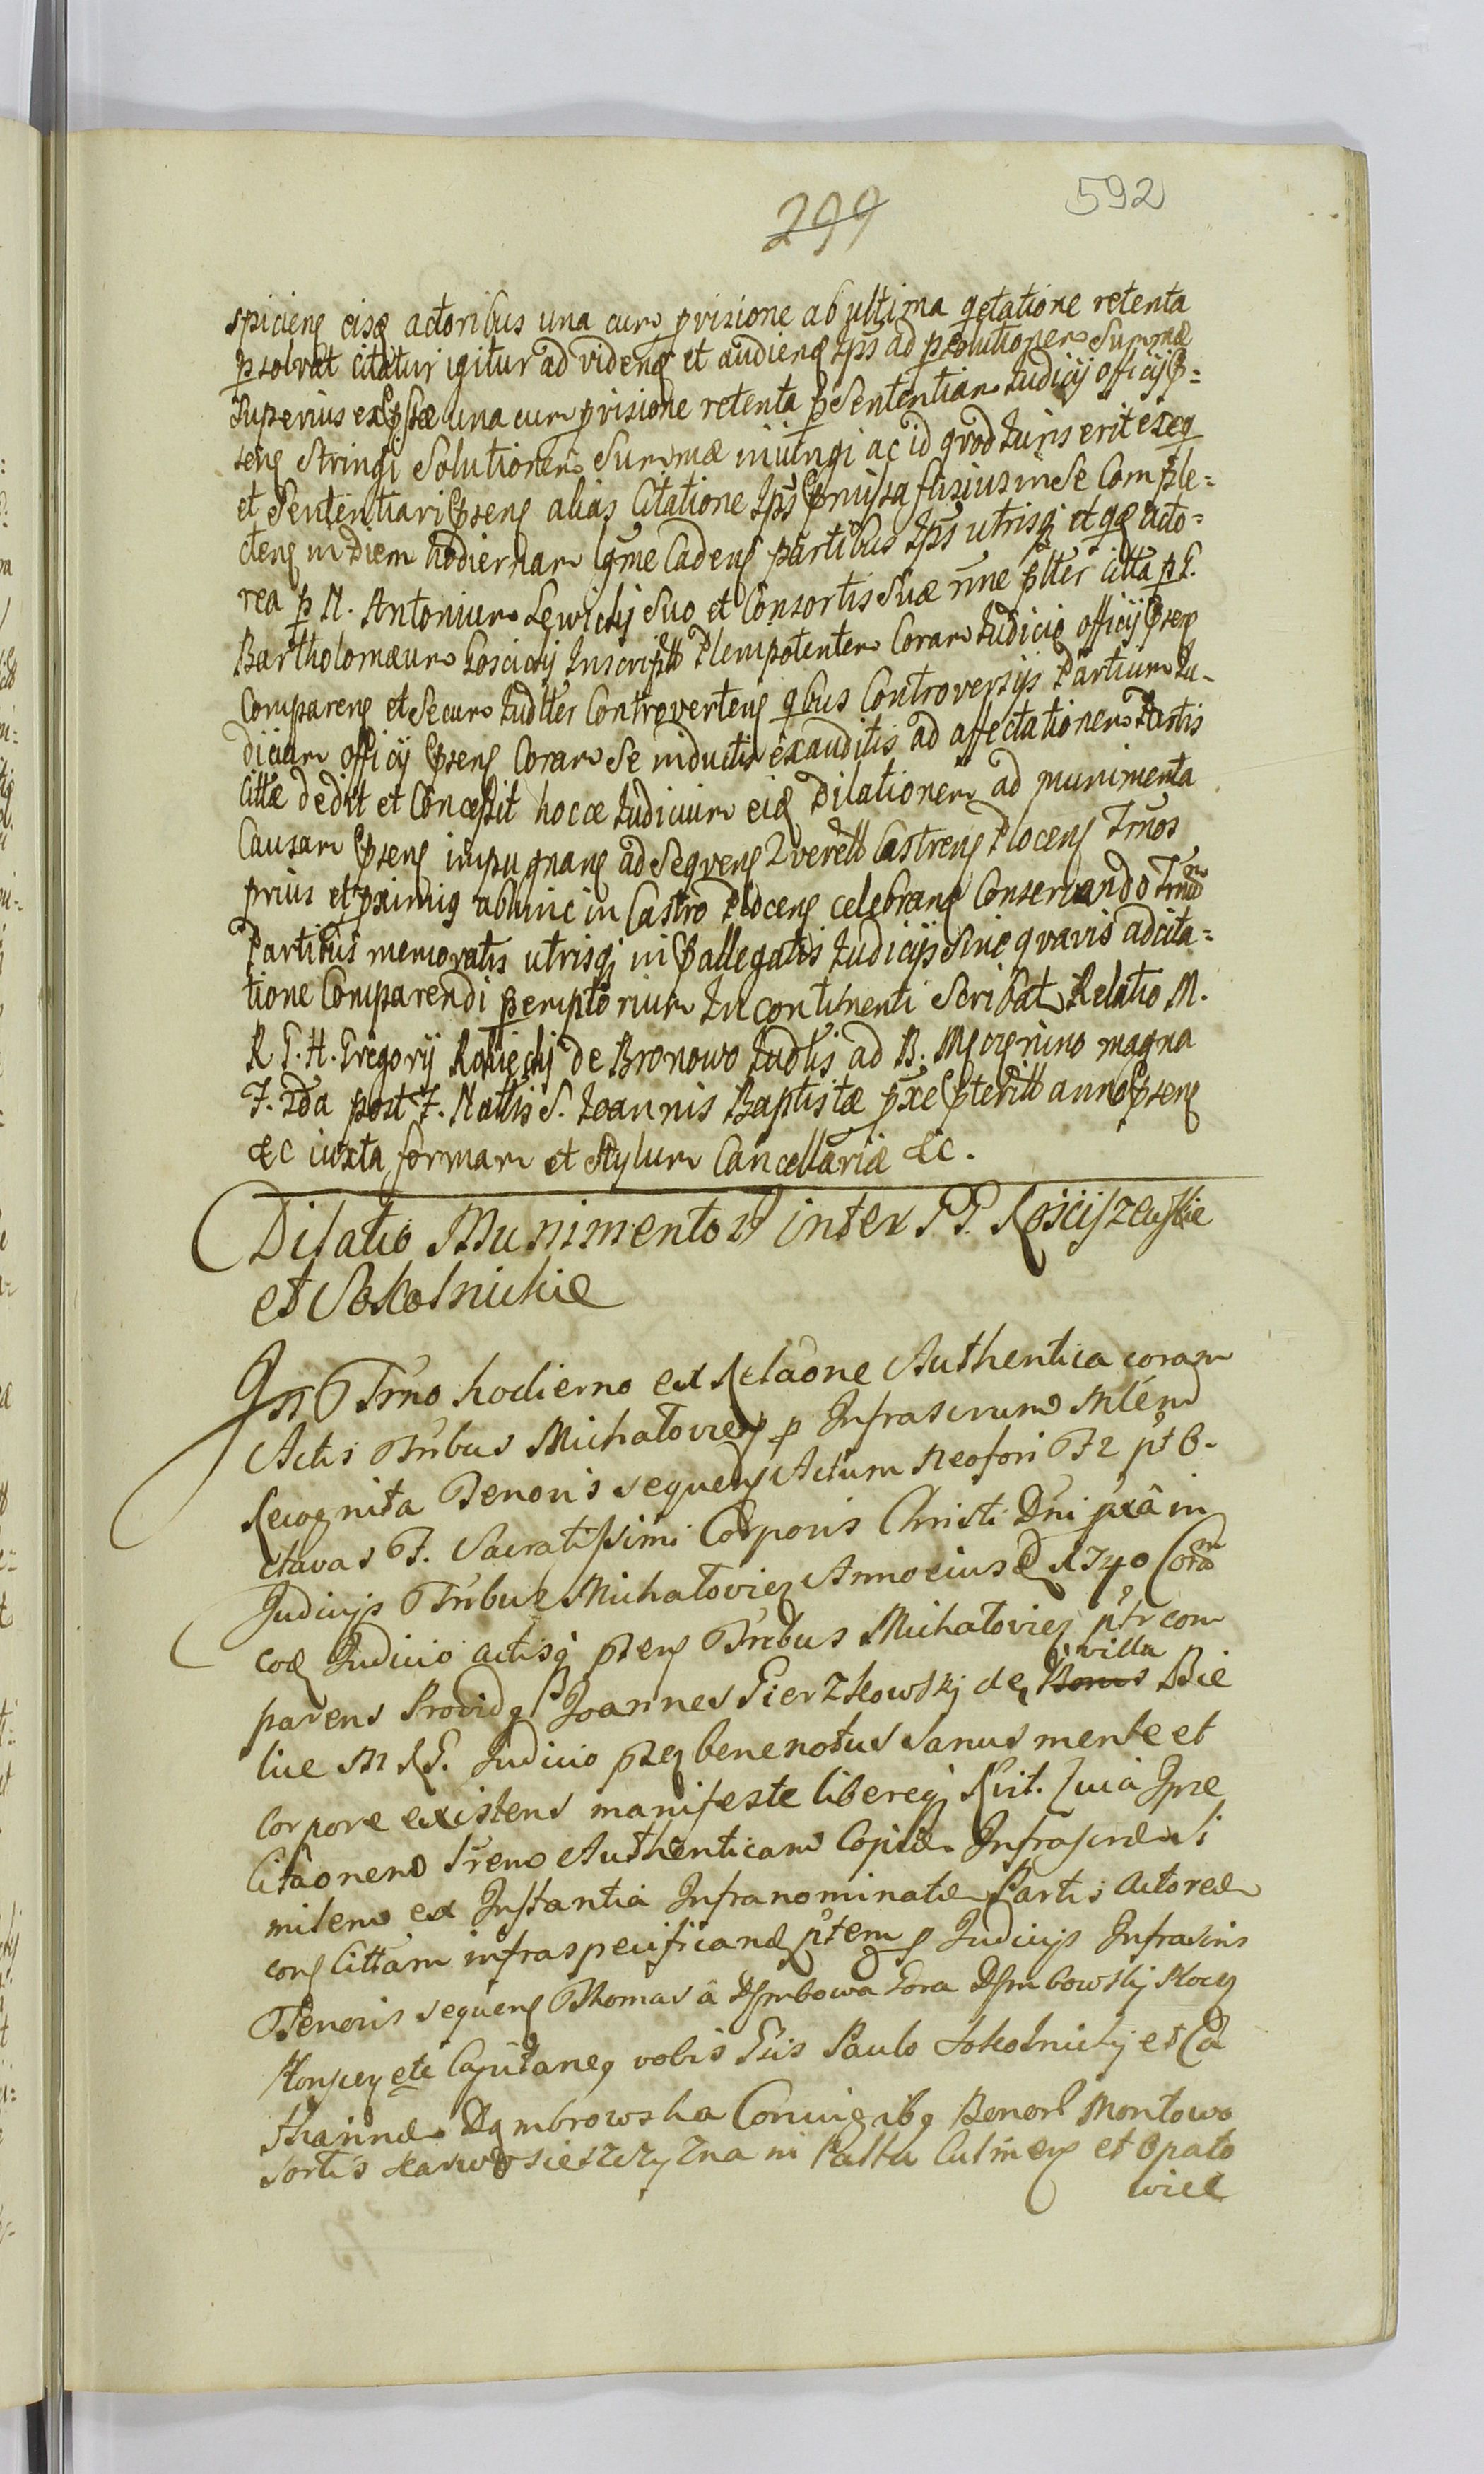 592
299
spicieng eisq actoribus una cum provisione ab ultima qetatione retenta
psolvat citatur igitur ad videnq et audienq Ips ad psolutionem Summæ
Superius exspstæ una cum provisione retenta p Sententiam Iudicij officij p=
seng Stringi Solutionem Summæ iniungi ac id qvod Iuris erit exeq
et Sententiari pseng alias Citatione Ips pmissa fusius in Se Comple=
cteng in Diem hodiernam lgme Cadeng partibus Ips utrisq et qæ acto=
rea p N. Antonium Lewickij Suo et Consortis Suæ nne pltèr citta p G.
Bartholomæum Koscickij Inscriptt Plenipotentem Coram Iudicio officij pseng
Compareng et Secum Iudltèr Controverteng qbus Controversijs Partium Iu-
dicium officij pseng Coram Se inductis exauditis ad affectationem Partis
Cittæ dedit et Concessit hocce Iudicium eiq Dilationem ad munimenta
Causam pseng impugnang ad Seqveng Qverell Castreng Ploceng Trnos
prius et pximig abhinc in Castro Ploceng celebrang Conservando Trnum
Partibus memoratis utrisqj in pallegatis Iudicijs Sine qvavis adcita=
tione Comparendi peremptorium In continenti Scribat Relatio M.
R G. H. Gregorij Rokickij de Bronowo Iudlis ad B. magna
F. 2da post F. Nattis S. Ioannis Baptistæ pxe ptèritt anno pseng
&c iuxta formam et Stylum Cancellariæ &c.
Dilatio Munimentor inter GG. Kosciszewskie
et Sokolnickie
In Trno hodierno ex Relaone Authentica coram
Actis Tribus Michałovieng p Infrascrum Mlend
Recognita Tenoris sequeng Actum Neofori F 2 pt O-
ctavas F. Sacratissimi Corporis Christi Dni pxa in
Judicijs Tribus Michałovieng Anno eiusd 1740 Cora
coq Iudicio actisq pseng Trbus Michałovieng ptr com
parens Providq Joannes Gierzkowskj de villa Bonis Bie
lice M R G. Judicio pseng bene notus sanus mente et
Corpore existens manifeste libereqj Rvit. Quia Ipse
Citaonem Trem Authenticam Copiæ Infrascræ Si
milem ex Instantia Infranominatæ Partis Actoreæ
cong Cittam infraspecificand ptem p Judicijs Infrascris
Tenoris sequeng Thomas â Dęmbowa Gora Dęmbowskij Płoceng
etc Capitaneq vobis Gsis Paulo Sokolnickij et Ca
tharinæ Dąmbrowska Coniugibq Bonor Montowo
Sortis in Palttu Culmeng et Opato
wice